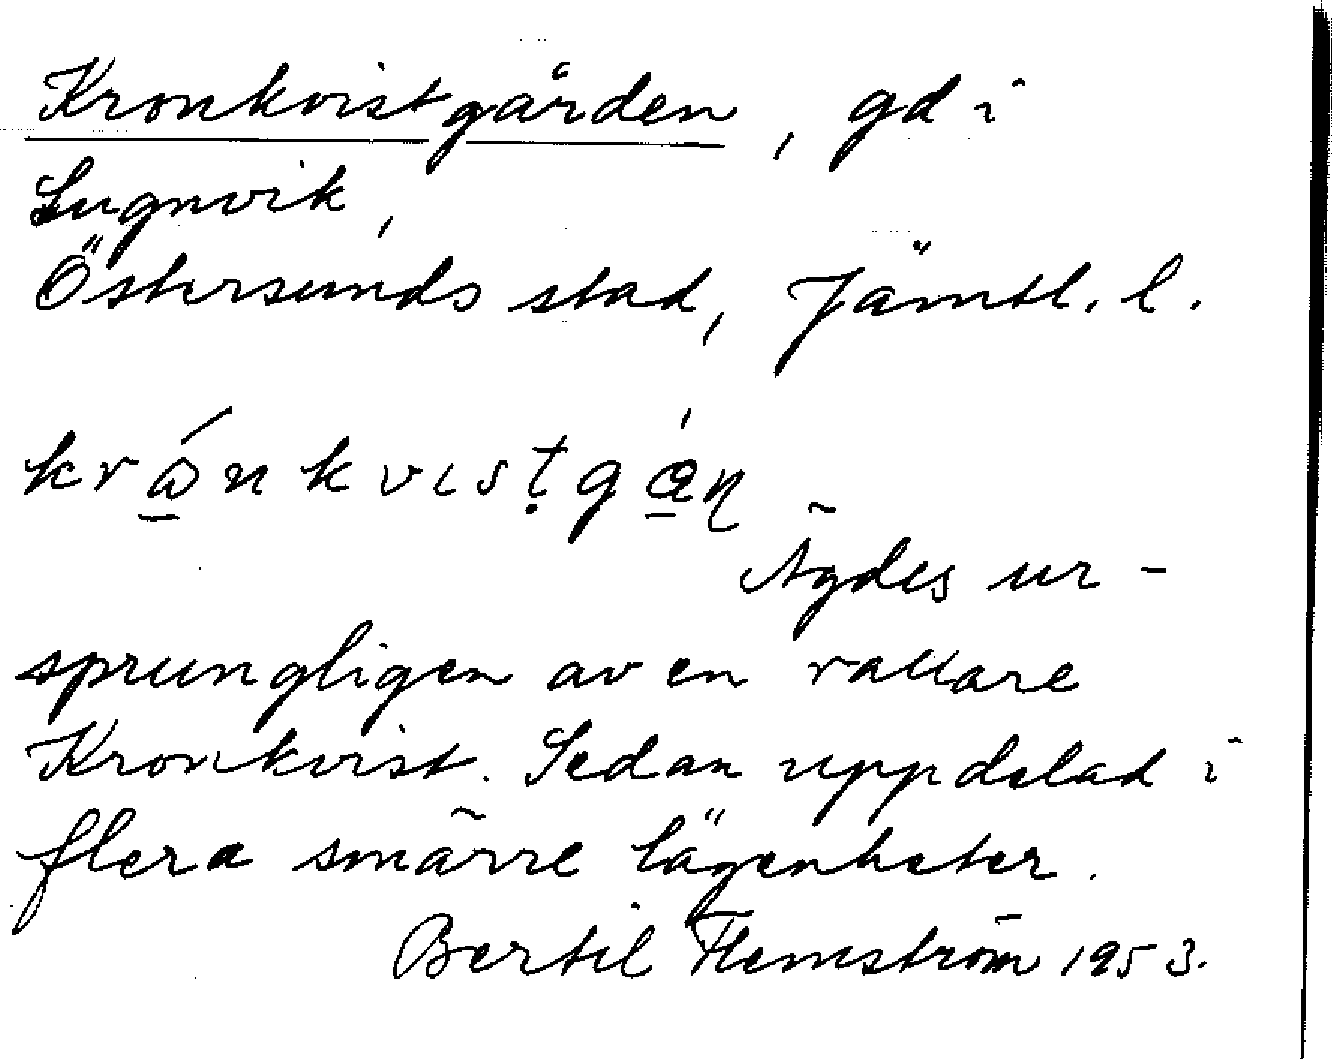 Kronkvistgården, gd i
Lugnvik,
Östersunds stad, Jämtl. l.
krώ̲nkvısṭgά̲ɳ
Ägdes ur-
sprungligen av en rallare
Kronkvist. Sedan uppdelad i
flera smärre lägenheter.
Bertil Flemström 1953.